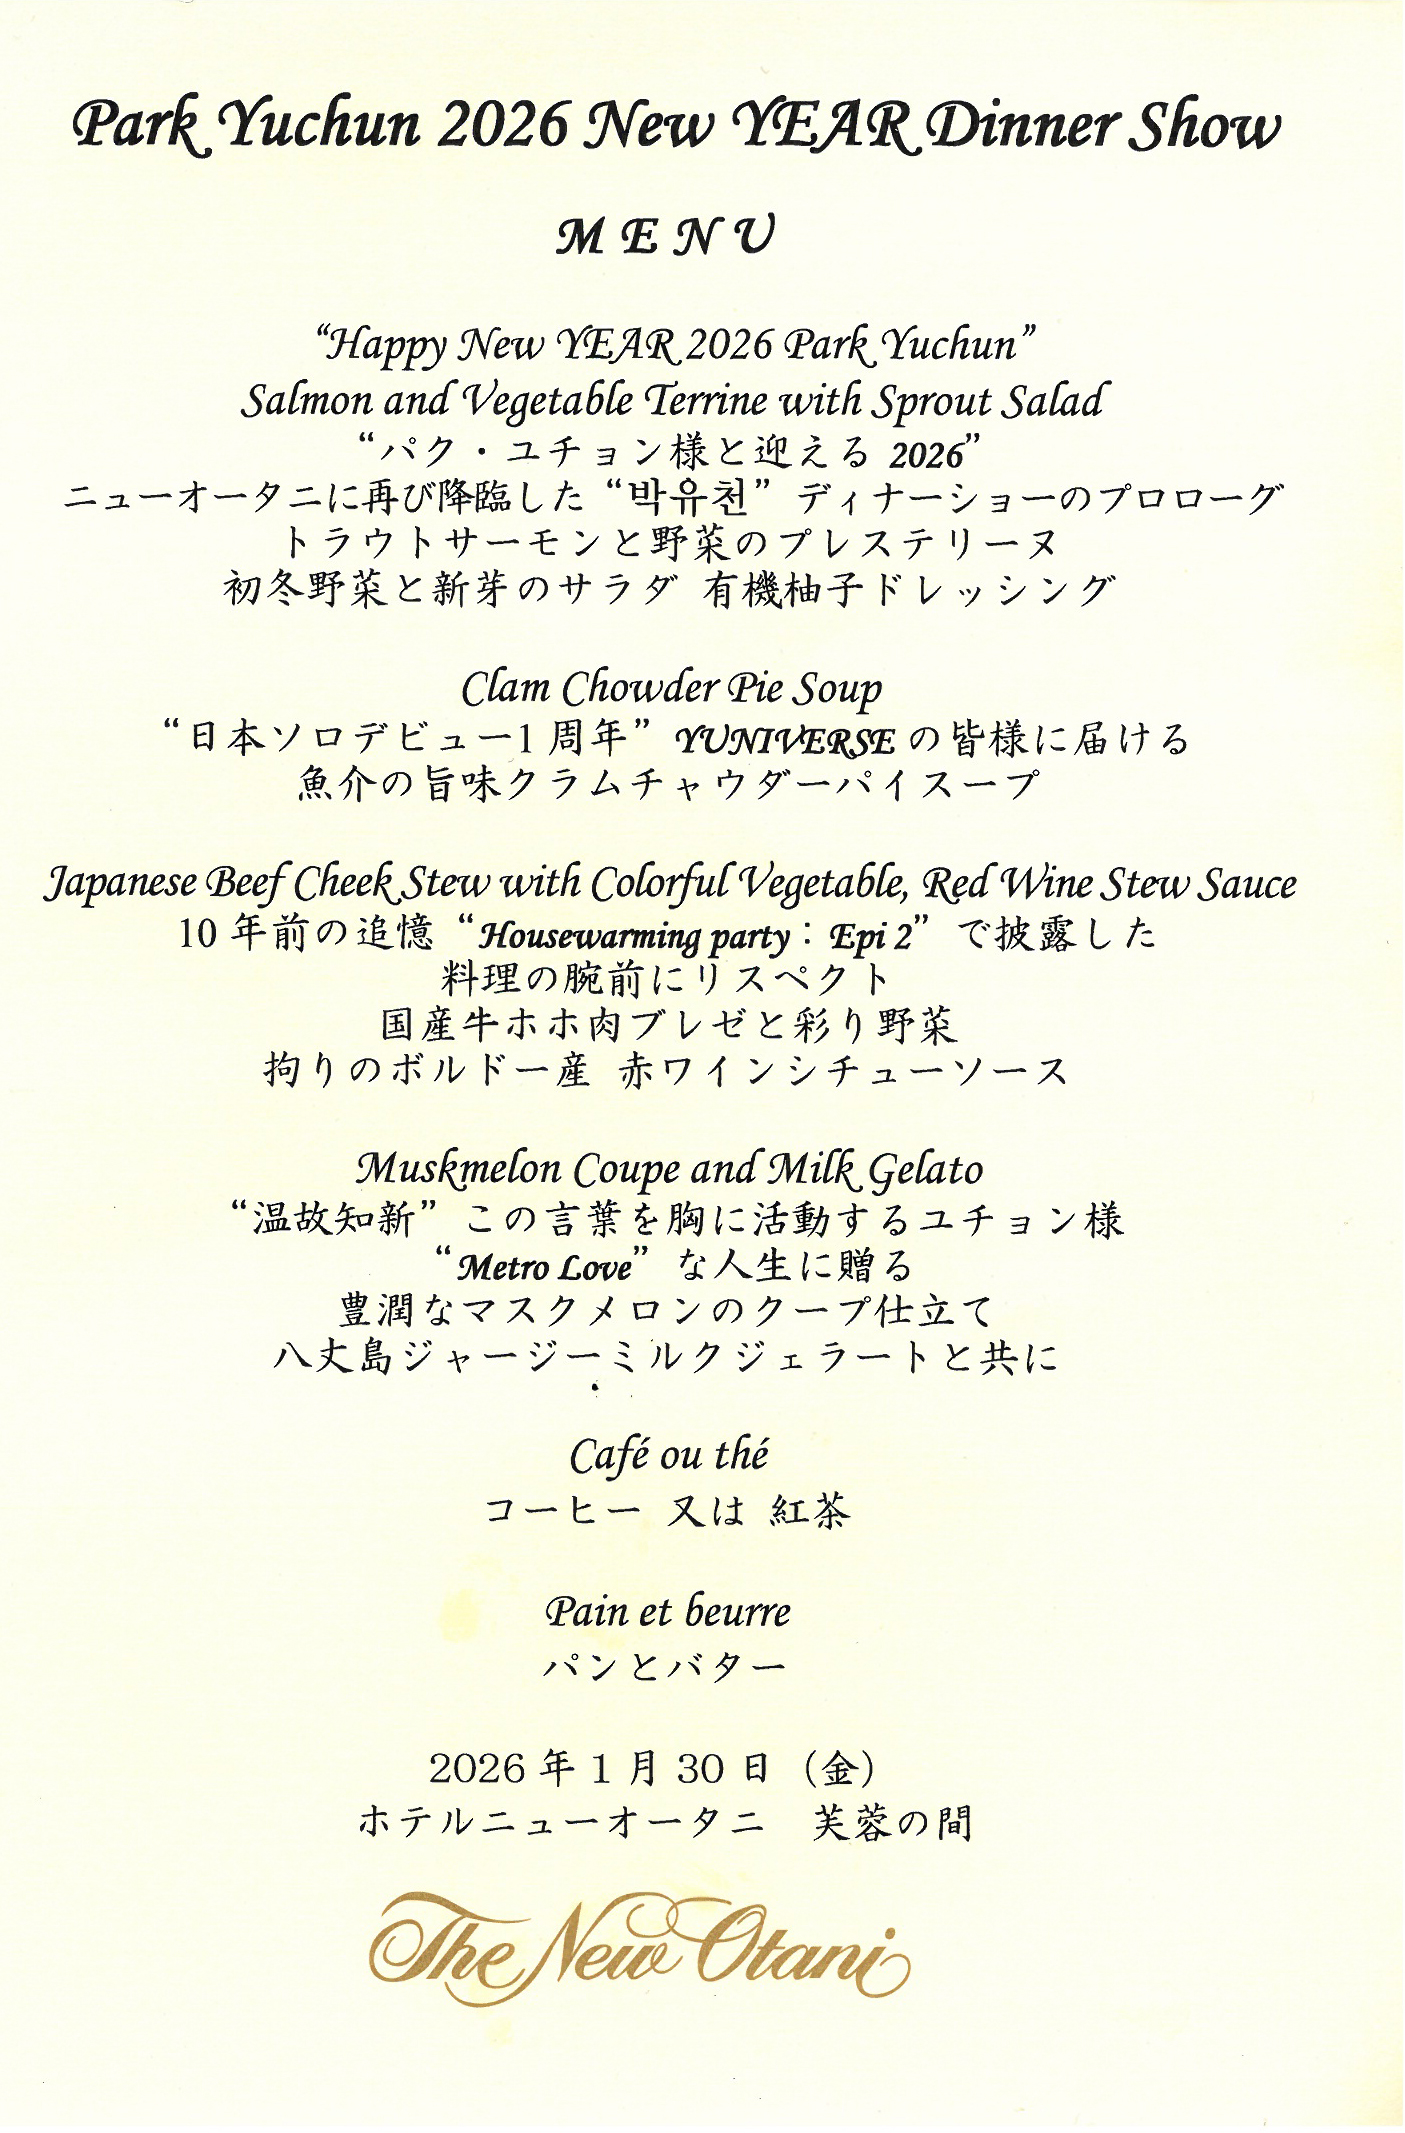 Park Yuchun 2026 New YEAR Dinner Show
MENU
“Happy New YEAR 2026 Park Yuchun”
Salmon and Vegetable Terrine with Sprout Salad
“パク・ユチョン様と迎える 2026”
ニューオータニに再び降臨した “박유천” ディナーショーのプロローグ
トラウトサーモンと野菜のプレステリーヌ
初冬野菜と新芽のサラダ 有機柚子ドレッシング
Clam Chowder Pie Soup
“日本ソロデビュー1 周年” YUNIVERSE の皆様に届ける
魚介の旨味クラムチャウダーパイスープ
Japanese Beef Cheek Stew with Colorful Vegetable, Red Wine Stew Sauce
10 年前の追憶 “Housewarming party：Epi 2” で披露した
料理の腕前にリスペクト
国産牛ホホ肉ブレゼと彩り野菜
拘りのボルドー産 赤ワインシチューソース
Muskmelon Coupe and Milk Gelato
“温故知新” この言葉を胸に活動するユチョン様
“Metro Love” な人生に贈る
豊潤なマスクメロンのクープ仕立て
八丈島ジャージーミルクジェラートと共に
Café ou thé
コーヒー 又は 紅茶
Pain et beurre
パンとバター
2026 年 1 月 30 日（金）
ホテルニューオータニ　芙蓉の間
The New Otani